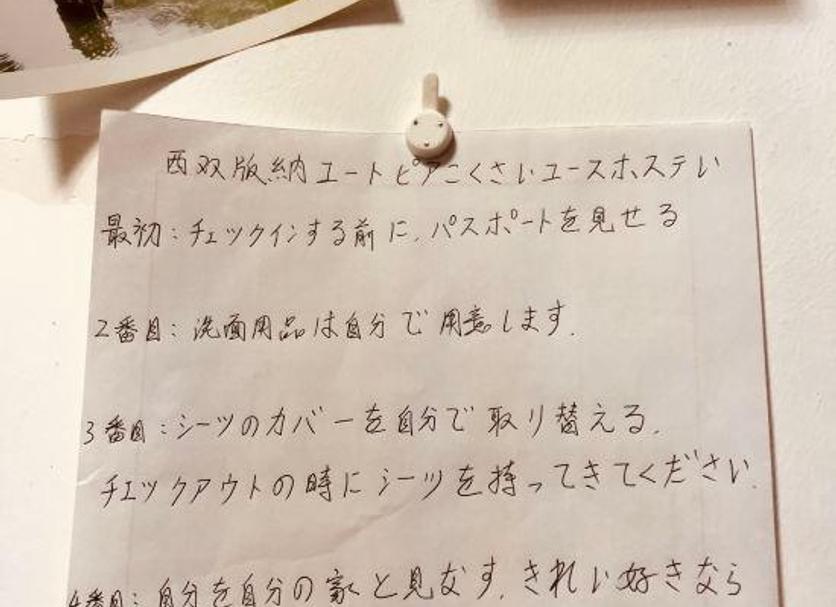 西双版納ユートピアこくさいユースホステい
最初：チェックインする前に、パスポートを見せる
2番目：洗面用品は自分で用意します.
3番目：シーツのカバーを自分で取り替える.
チェックアウトの時にシーツを持ってきてください.
4番目：自分を自分の家と見なす.きれい好きなら